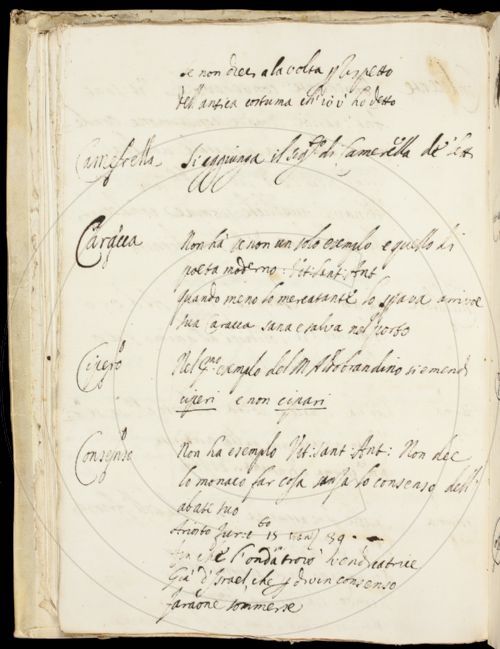 se non dieci a la volta p rispetto
dell'antica costuma ch'io v'ho detto
Camerella
si aggiunga il sig.to di Camerella de Let
Caracca
Non ha se non un solo esempio e quello di
poeta moderno: Vit: Sant: Ant
quando meno lo mercatante lo sperava arrivoe
sua Caracca sana e salva nel porto
Cipero
Nel p.mo esemplo del M Aldobrandino si emendi
ciperi e non cipari
Consenso
Non ha esempio Vit: Sant: Ant: Non dee
lo monaco far cosa sanza lo consenso dell'
abate suo
Ariosto Fur: 15 39
che l'onda trovò vendicatrice
Già d'Israel, che p divin consenso
faraone sommerse